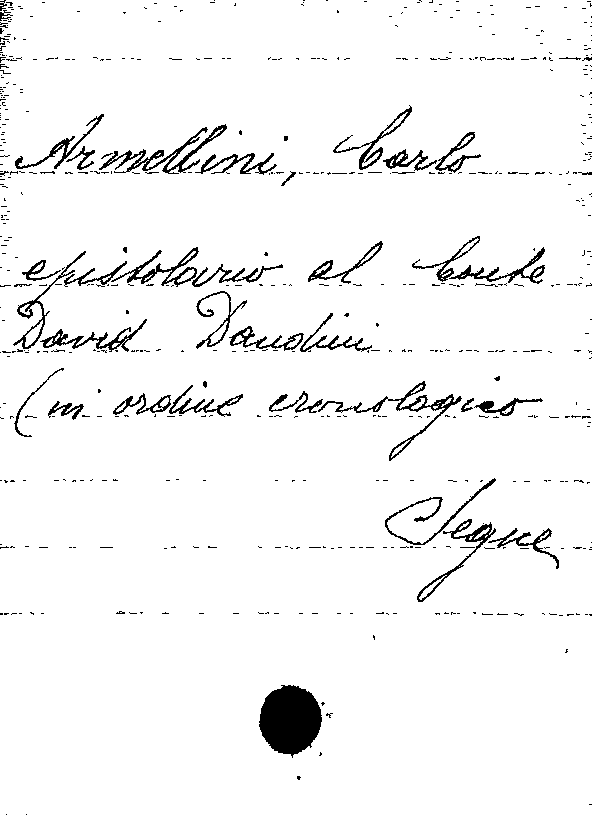 Armellini, Carlo
epistolario al Conte
David Dandini
(in ordine cronologico
Segue